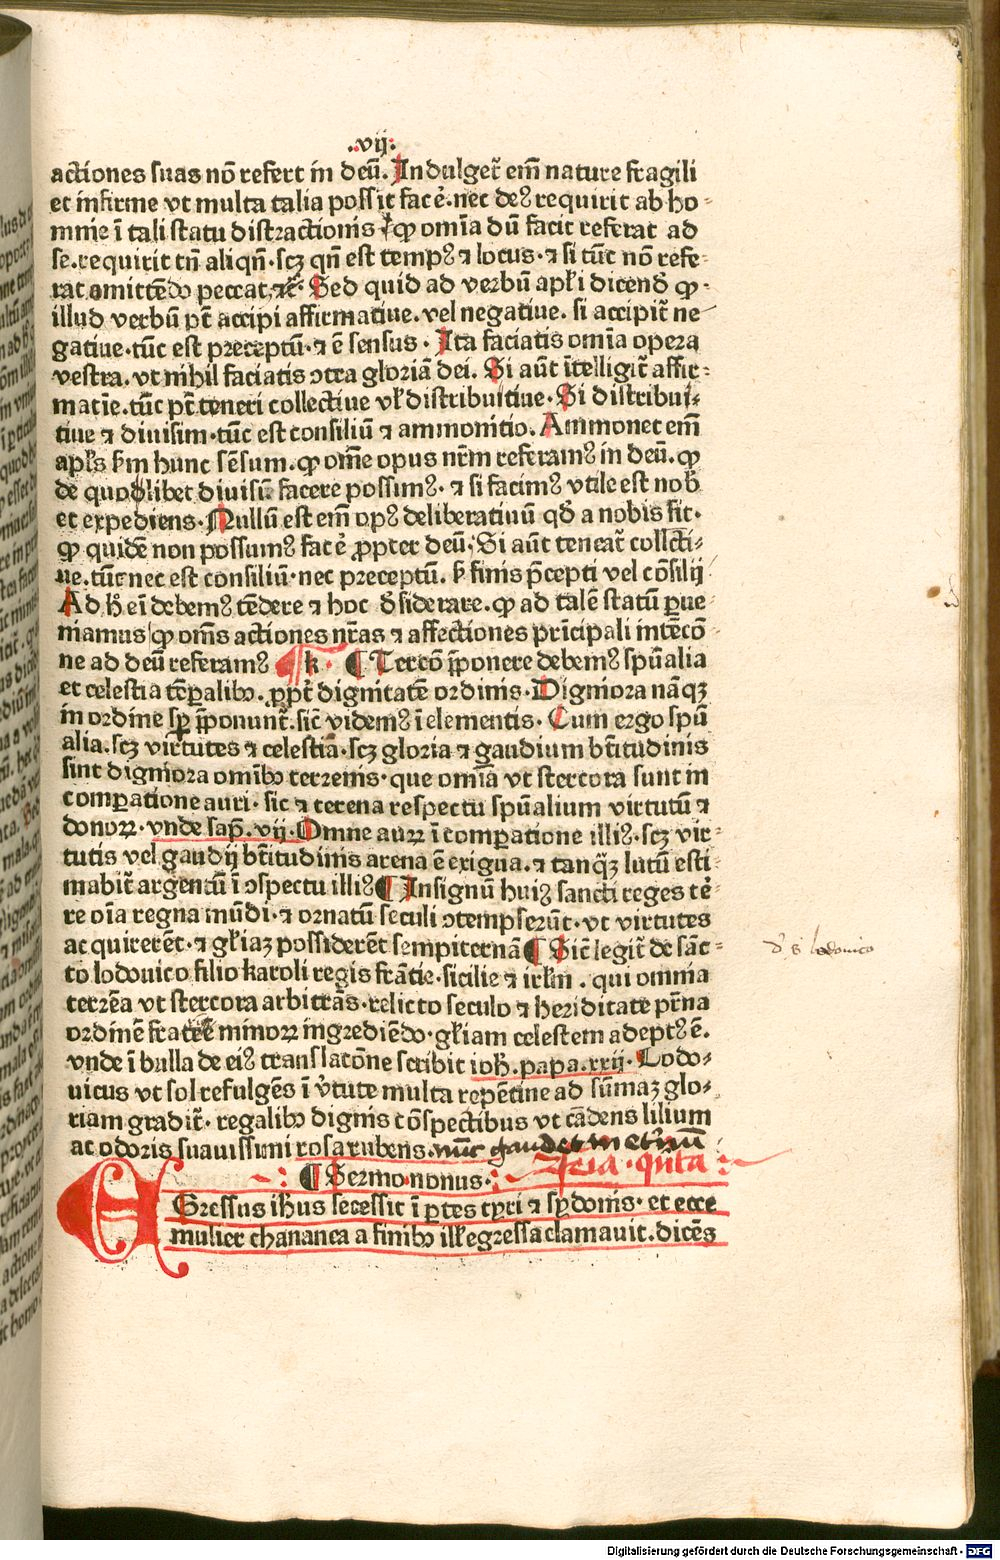 .vij.
actiones suas nō refert in deū. Indulget̄ em̄ nature fragili
et infirme vt multa talia possit facē. nec deꝰ requirit ab ho⸗
mine ī tali statu distractionis ꝙ omīa dū facit referat ad
se. requirit tn̄ aliqn̄. scꝫ qn̄ est tempꝰ ⁊ locus. ⁊ si tūc nō refe⸗
rat omittēdo peccat, ⁊c̄. Sed quid ad verbū apłi dicend ꝙ
illud verbū pt̄ accipi affirmatiue. vel negatiue. si accipit̄ ne
gatiue. tūc est preceptū. ⁊ ē sensus. Ita faciatis omīa opera
vestra. vt nihil faciatis ↄtra gloriā dei. Si aūt ītelligit̄ affir⸗
matīe. tūc pt̄ teneri collectiue vł distributiue. Si distribu⸗
tiue ⁊ diuisim. tūc est consiliū ⁊ ammonitio. Ammonet em̄
apłs km hunc sēsum. ꝙ om̄e opus nr̄m referamꝰ in deū. ꝙ
de quodlibet diuisī facere possumꝰ. ⁊ si facimꝰ vtile est nob̄
et expediens. Nullū est em̄ opꝰ deliberatiuū qd̄ a nobis fit.
ꝙ quidē non possumꝰ facē ꝓpter deū. Si aūt teneat̄ collcti⸗
ue. tūc nec est consiliū. nec preceptū. ꝃ finis p̄cepti vel cōsilij
Ad h̄ eī debemꝰ tēdere ⁊ hoc d̄siderare. ꝙ ad talē statū ꝑue
niamus ꝙ om̄s actiones nr̄as ⁊ affectiones prīcipali intēcō⸗
ne ad deū referamꝰ ¶ k. ¶ Tercō p̄ponere debemꝰ spūalia
et celestia tēꝑalibꝫ. ꝓpt̄ dignitatē ordinis. Digniora nāqꝫ
in ordine sꝑ p̄ponunt̄. sic̄ videmꝰ ī elementis. Cum ergo spū
alia. scꝫ virtutes ⁊ celestia. scꝫ gloria ⁊ gaudium bt̄itudinis
sint digniora omībꝫ terrenis. que omīa vt stercora sunt in
comꝑatione auri. sic ⁊ terena respectu spūalium virtutū ⁊
donoꝝ. vnde sap̄. vij. Omne auꝝ ī comꝑatione illiꝰ. scꝫ vir⸗
tutis vel gaudij bt̄itudinis arena ē exigua. ⁊ tanqꝫ̄ lutū esti⸗
mabit̄ argentū ī ↄspectu illiꝰ ¶ Insignū huiꝰ sancti reges tē⸗
re oīa regna mūdi. ⁊ ornatū seculi ↄtempserūt. vt virtutes
acquirerēt. ⁊ głiaꝫ possiderēt sempiternā ¶ Sic̄ legit̄ de sāc⸗
to lodouico filio karoli regis frātie. sicilie ⁊ irłm. qui omnia
terrēa vt stercora arbitrās. relicto seculo ⁊ heriditate pr̄na
ordinē fratrū minoꝝ ingrediēdo. głiam celestem adeptꝰ ē.
vnde ī bulla de eiꝰ translatōne scribit ioh̄. papa. xxij. Lodo⸗
uicus vt sol refulgēs ī v̄tute multa repētine ad sūmaꝫ glo⸗
riam gradit̄. regalibꝫ dignis cōspectibus vt cādens lilium
ac odoris suauissimi rosa rubens. nūc gaudet in et̄nū
feria. qn̄ta
¶ Sermo nonus.
EGressus ih̄us secessit ī ꝑtes tyri ⁊ sydonis. et ecce
mulier chananea a finibꝫ illis egressa clamauit. dicēs
d̄ s̄ lodouico
Digitalisierung gefördert durch die Deutsche Forschungsgemeinschaft - DFG